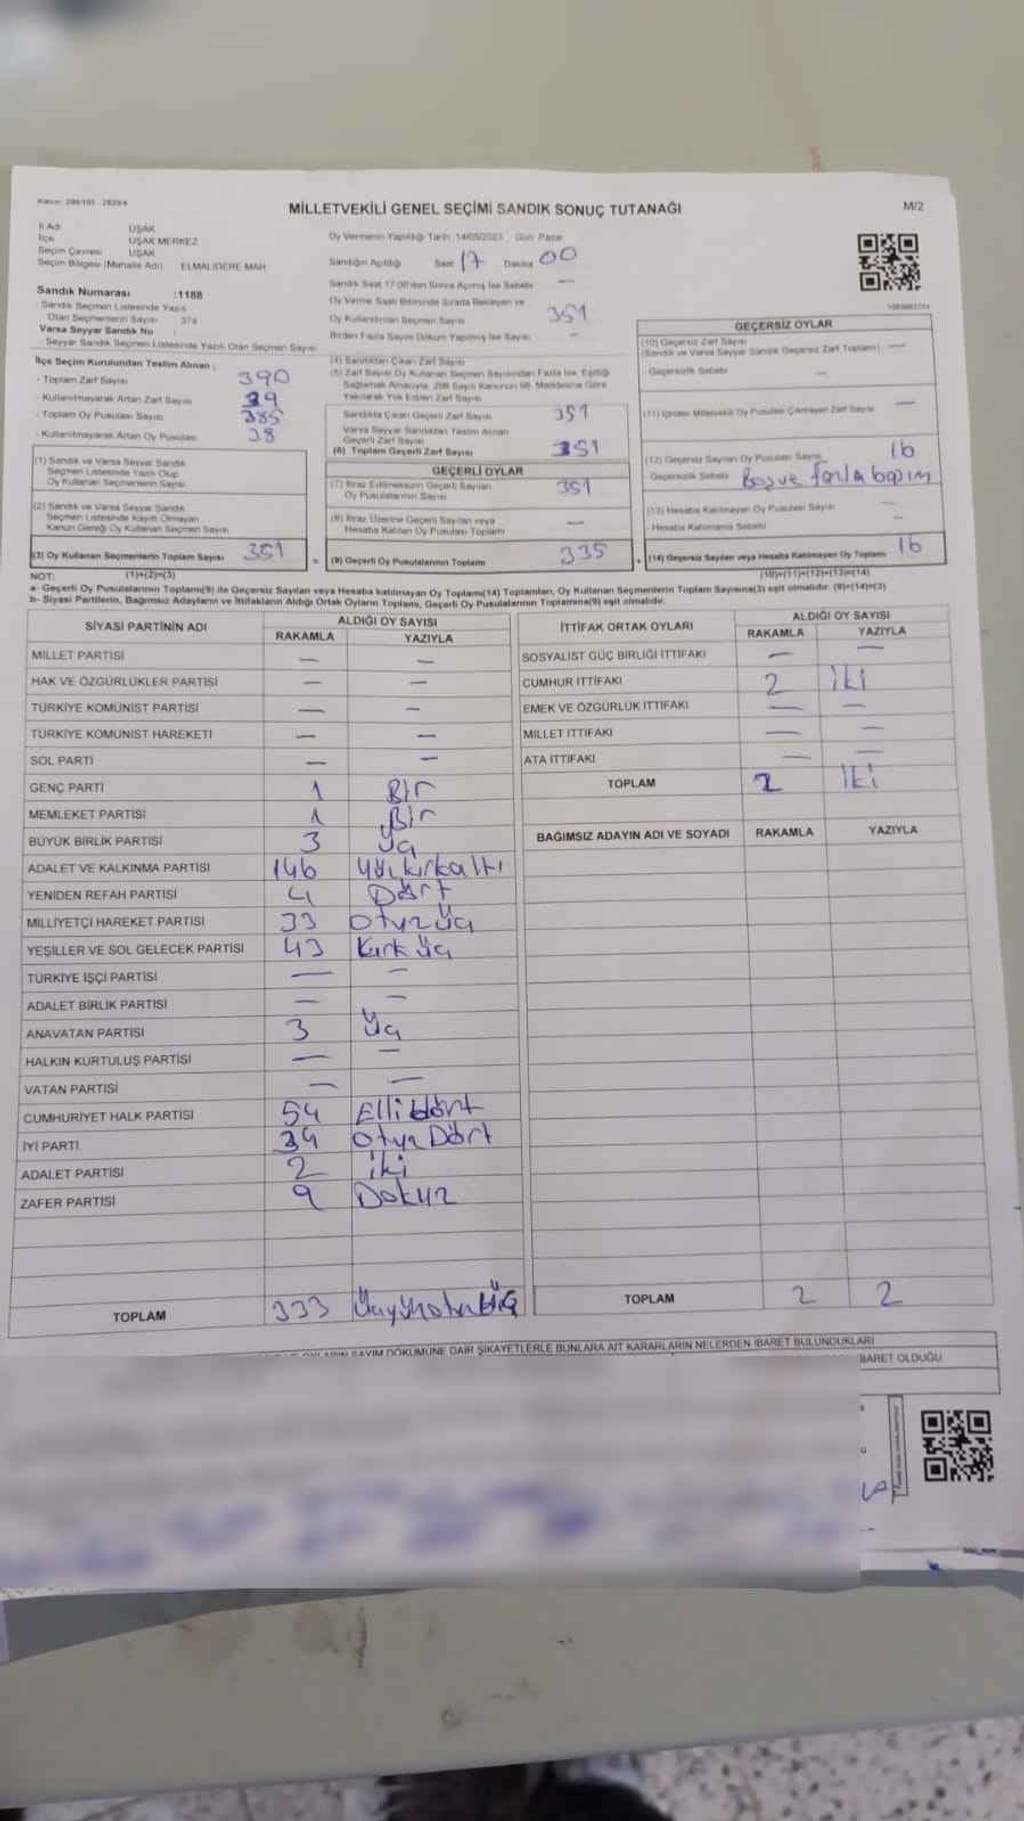 MİLLETVEKİLİ GENEL SEÇİMİ SANDIK SONUÇ TUTANAĞI
M/2
İl Adı UŞAK
İlçe UŞAK MERKEZ
Seçim Çevresi UŞAK
Seçim Bölgesi (Mahalle Adı) ELMALIDERE MAH
Sandık Numarası :1188
Sandık Seçmen Listesinde Yazılı
Olan Seçmenlerin Sayısı 374
Varsa Seyyar Sandık No
Seyyar Sandık Seçmen Listesinde Yazılı Olan Seçmen Sayısı
Oy Vermenin Yapıldığı Tarih 14/05/2023 Gün Pazar
Sandığın Açıldığı Saat 17 Dakika 00
Sandık Saat 17.00'den Sonra Açılmış İse Sebebi —
Oy Verme Saati Bitiminde Sırada Bekleyen ve
Oy Kullandırılan Seçmen Sayısı 351
Birden Fazla Sayım Döküm Yapılmış İse Sayısı —
İlçe Seçim Kurulundan Teslim Alınan ;
- Toplam Zarf Sayısı 390
- Kullanılmayarak Artan Zarf Sayısı 39
- Toplam Oy Pusulası Sayısı 385
- Kullanılmayarak Artan Oy Pusulası 38
(1) Sandık ve Varsa Seyyar Sandık
Seçmen Listesinde Yazılı Olup
Oy Kullanan Seçmenlerin Sayısı
(2) Sandık ve Varsa Seyyar Sandık
Seçmen Listesinde Kayıtlı Olmayan
Kanun Gereği Oy Kullanan Seçmen Sayısı
(3) Oy Kullanan Seçmenlerin Toplam Sayısı 351
(4) Sandıktan Çıkan Zarf Sayısı
(5) Zarf Sayısı Oy Kullanan Seçmen Sayısından Fazla İse, Eşitliği
Sağlamak Amacıyla, 298 Sayılı Kanunun 98. Maddesine Göre
Yakılarak Yok Edilen Zarf Sayısı
Sandıkta Çıkan Geçerli Zarf Sayısı 351
Varsa Seyyar Sandıktan Teslim Alınan
Geçerli Zarf Sayısı
(6). Toplam Geçerli Zarf Sayısı 351
GEÇERLİ OYLAR
(7) İtiraz Edilmeksizin Geçerli Sayılan
Oy Pusulalarının Sayısı 351
(8) İtiraz Üzerine Geçerli Sayılan veya
Hesaba Katılan Oy Pusulası Toplamı —
(9) Geçerli Oy Pusulalarının Toplamı 335
GEÇERSİZ OYLAR
(10) Geçersiz Zarf Sayısı
(Sandık ve Varsa Seyyar Sandık Geçersiz Zarf Toplamı) —
Geçersizlik Sebebi —
(11) İçinden Milletvekili Oy Pusulası Çıkmayan Zarf Sayısı —
(12) Geçersiz Sayılan Oy Pusulası Sayısı 16
Geçersizlik Sebebi Boş ve fazla basım
(13) Hesaba Katılmayan Oy Pusulası Sayısı —
Hesaba Katılmama Sebebi —
(14) Geçersiz Sayılan veya Hesaba Katılmayan Oy Toplamı 16
NOT: (1)+(2)=(3) (10)+(11)+(12)+(13)=(14)
a- Geçerli Oy Pusulalarının Toplamı(9) ile Geçersiz Sayılan veya Hesaba katılmayan Oy Toplamı(14) Toplamları, Oy Kullanan Seçmenlerin Toplam Sayısına(3) eşit olmalıdır. (9)+(14)=(3)
b- Siyasi Partilerin, Bağımsız Adayların ve İttifakların Aldığı Ortak Oyların Toplamı, Geçerli Oy Pusulalarının Toplamına(9) eşit olmalıdır.
SİYASİ PARTİNİN ADI ALDIĞI OY SAYISI
RAKAMLA YAZIYLA
MİLLET PARTİSİ — —
HAK VE ÖZGÜRLÜKLER PARTİSİ — —
TÜRKİYE KOMÜNİST PARTİSİ — —
TÜRKİYE KOMÜNİST HAREKETİ — —
SOL PARTİ — —
GENÇ PARTİ 1 Bir
MEMLEKET PARTİSİ 1 Bir
BÜYÜK BİRLİK PARTİSİ 3 Üç
ADALET VE KALKINMA PARTİSİ 146 Yüzkırkaltı
YENİDEN REFAH PARTİSİ 4 Dört
MİLLİYETÇİ HAREKET PARTİSİ 33 Otuzüç
YEŞİLLER VE SOL GELECEK PARTİSİ 43 Kırk üç
TÜRKİYE İŞÇİ PARTİSİ — —
ADALET BİRLİK PARTİSİ — —
ANAVATAN PARTİSİ 3 Üç
HALKIN KURTULUŞ PARTİSİ — —
VATAN PARTİSİ — —
CUMHURİYET HALK PARTİSİ 54 Elli dört
İYİ PARTİ 34 Otuz Dört
ADALET PARTİSİ 2 iki
ZAFER PARTİSİ 9 Dokuz
TOPLAM 333 Üçyüzotuzüç
İTTİFAK ORTAK OYLARI ALDIĞI OY SAYISI
RAKAMLA YAZIYLA
SOSYALİST GÜÇ BİRLİĞİ İTTİFAKI — —
CUMHUR İTTİFAKI 2 iki
EMEK VE ÖZGÜRLÜK İTTİFAKI — —
MİLLET İTTİFAKI — —
ATA İTTİFAKI — —
TOPLAM 2 iki
BAĞIMSIZ ADAYIN ADI VE SOYADI RAKAMLA YAZIYLA
TOPLAM 2 2
SAYIM DÖKÜMÜNE DAİR ŞİKAYETLERLE BUNLARA AİT KARARLARIN NELERDEN İBARET BULUNDUKLARI
İBARET OLDUĞU